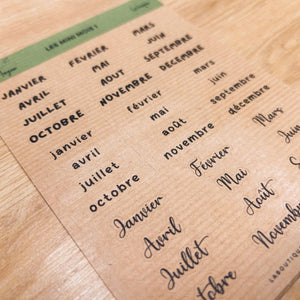 LES MINI MOIS !
JANVIER FÉVRIER MARS
AVRIL MAI JUIN
JUILLET AOUT SEPTEMBRE
OCTOBRE NOVEMBRE DÉCEMBRE
janvier février mars
avril mai juin
juillet août septembre
octobre novembre décembre
Janvier Février Mars
Avril Mai Juin
Juillet Août
Novembre
LABOUTIQ